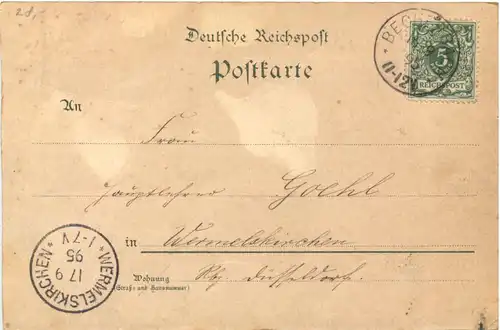 28.
Deutsche Reichspost
Postkarte
5
REICHSPOST
11-12V
An
Frau
Hauptlehrer Goehl
in Wermelskirchen
Wohnung Rbz Düsseldorf.
(Straße und Hausnummer)
* WERMELSKIRCHEN *
17 9
95
1-7V